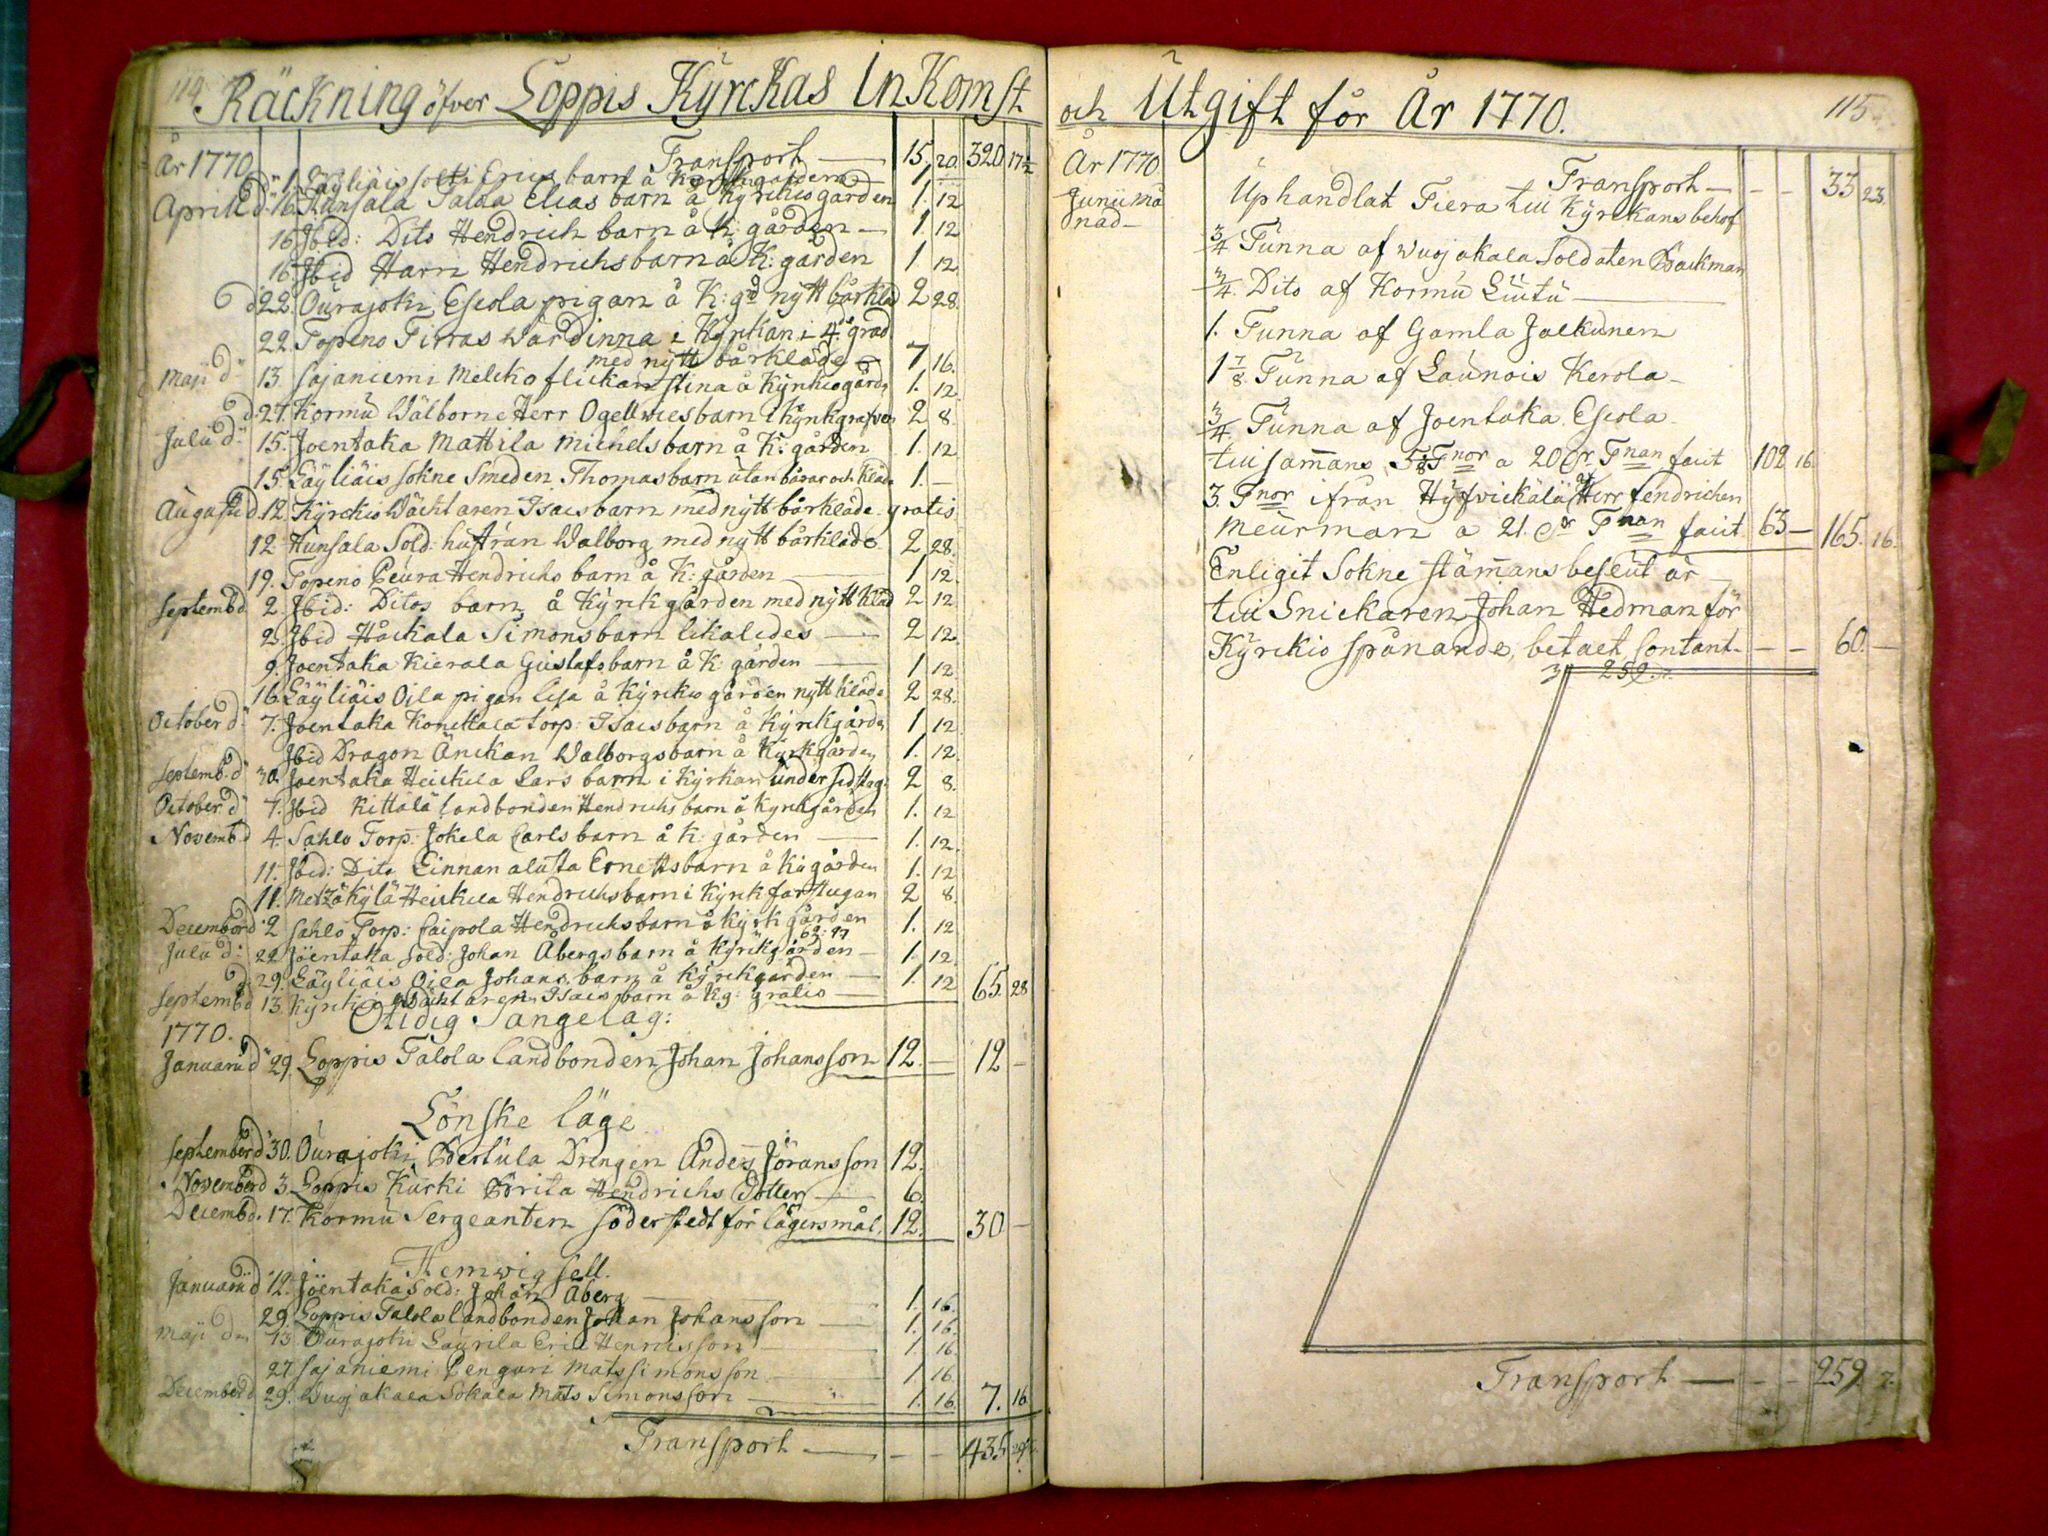 114
Räckning öfver Loppis Kÿrckas Inkomst
År 1770 Transport — 15 20 320 17½
1. Läyliäis Erics barn å Kÿrckiogården 1
Aprill d: 16. Kunsala Talaa Elias barn å Kÿrckiogården 1. 12
16. Ibid: Dito Hendrich barn å K: gården — 1. 12
16. Ibid Harn Hendrichs barn å K: gården 1 12
d 22. Ourajoki Escola pigan å K: gd nÿtt bårkläd 2 28.
22. Topeno Tirras Wardinna i Kÿrckan i 4de grad
med nÿtt bårkläde — 7 16.
Maji d: 13. Sajaniemi Melcko flickan Stina å Kÿrckiogård 1. 12
d. 27. Kormu Wälborne Herr Ogellwies barn i Kÿrkgrafven 2 8.
Julii d: 15. Joentaka Mattila Michels barn å K: gården 1. 12
15. Läÿliäis Sokne Smeden Thomas barn utan bårar och kläde 1. —
Augusti d. 12. Kÿrckio Wächtaren Isacs barn med nÿtt bårkläde gratis
12 Kunsala Sold: hustran Walborg med nÿtt bårkläde 2 28.
19. Topeno Peura Hendrichs barn å K: gården — 1 12.
Septemb d 2. Ibid: Ditos barn å Kÿrckgården med nÿtt kläd 2 12
2. Ibid Håckala Simons barn likaledes — 2 12.
9. Joentaka Kierala Gustafs barn å K: gården — 1 12.
16. Läÿliäis Oila pigan Lisa å Kÿrckiogården nÿtt kläde 2 28.
October d: 7. Joentaka torp: Isacs barn å Kÿrckgården 1 12
Ibid Dragon Änckan Walborgs barn å Kÿrckgården 1. 12.
Septemb. d 30. Joentaka Heickila Lars barn i Kÿrkan under 2 8.
October d 7. Ibid Kittälä Landbonden Hendrichs barn å Kÿrckgården 1. 12
Novemb d 4. Sahlo Torp: Jokela Carls barn å K: gården — 1. 12.
11. Ibid: Dito Linnan alusta barn å K: gården 1. 12
11. Metzäkÿlä Heickila Hendrichs barn i Kÿrckfarstugan 2 8.
December d 2 Sahlo Torp: Caipola Hendrichs barn å Kÿrckgården 1. 12
62: 27
Julii d: 22 Joentaka Sold: Johan Åbergs barn å Kÿrckgården — 1. 12.
d 29. Läÿliäis Oila Johans barn å Kÿrckgården — 1. 12 65. 28
Septemb d 13. Kÿrckio Wächtaren Isacs barn å Kg: gratis —
Otidig Sängelag:
1770.
Januarii d 29. Loppis Talola Landbonden Johan Johansson 12 — 12 —
Lönske läge
September d 30. Ourajoki Bertula Drengen Anders Jöransson 12.
November d 3. Loppis Kurki Brita Hendrichs Dotter — 6.
Decemb d. 17. Kormu Sergeanten Söderstedt för lägersmål. 12. 30 —
Hemwigsell.
Januarii d 12. Joentaka Sold: Johan Åberg — 1. 16.
29. Loppis Talola Landbonden Johan Johansson — 1. 16.
Maji d 13. Ourajoki Laurila Eric Henricsson — 1. 16.
27 Sajaniemi Penguri Mats Simonsson 1 16.
December d 29. Wuojakala Sokala Mats Simonsson — 1. 16. 7. 16
Transport — — — 435
och Utgift för År 1770. 115
År 1770 Transport — — — 33 23.
Junii må
nad —
Uphandlat Tiera till Kÿrckans behof
3/4 Tunna af Wuojakala Soldaten Backman
3/4. Dito af Kormu Liutu —
1. Tunna af Gamla Jalkunen
1 7/8. Tunna af Launois Kerola —
3/4 Tunna af Joentaka Escola —
tillsamans 5 1/8 Tnor a 20 dr Tnan facit 102 16
3. Tnor ifrån Hÿfvickälä af Herr fendrichen
Meurman a 21. dr Tnan facit 63 — 165. 16.
Enligit Sokne stämans beslut är
till Snickaren Johan Hedman för
Kÿrckio spånande, betalt contant — — — 60. —
259. 7.
Transport — — — 259 7.